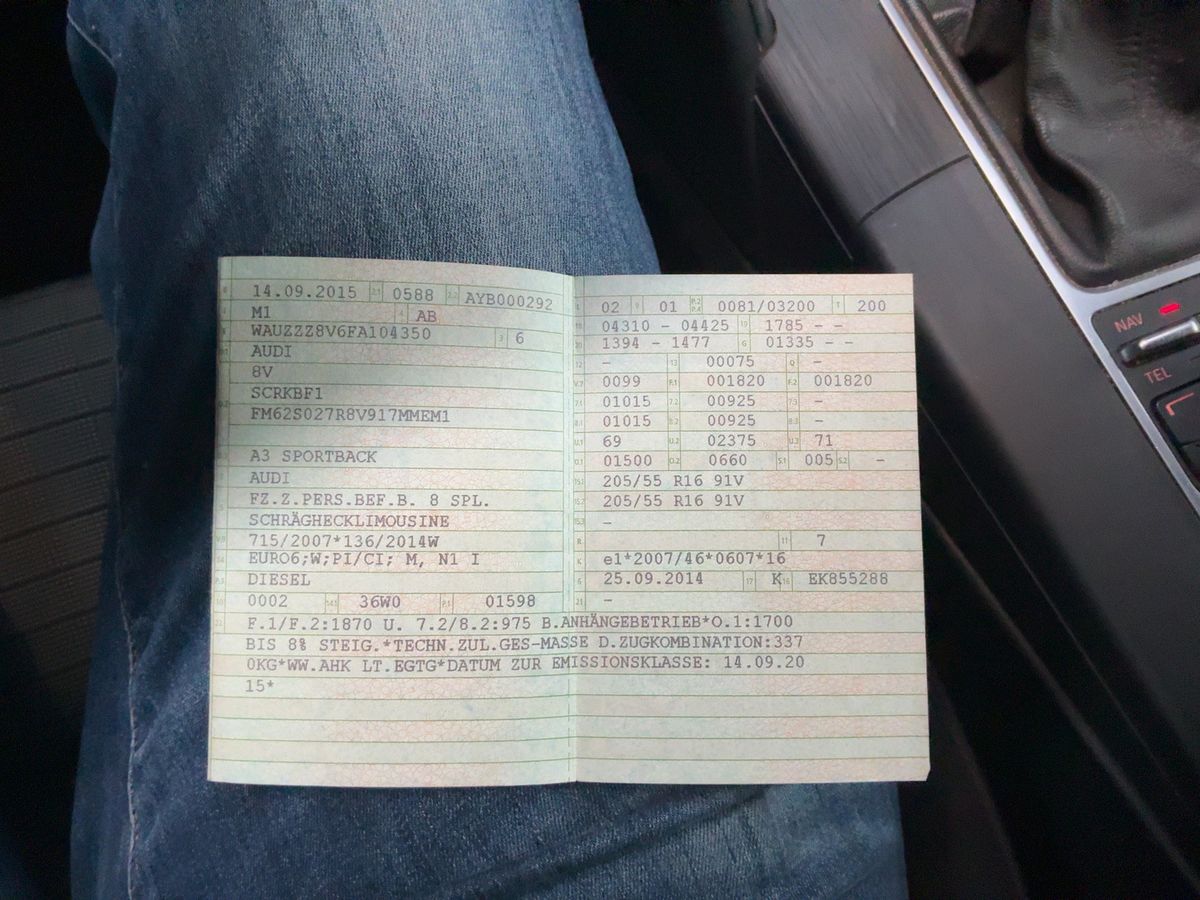 14.09.2015 2.1 0588 2.2 AYB000292
M1 4 AB
WAUZZZ8V6FA104350 3 6
AUDI
8V
SCRKBF1
FM62S027R8V917MMEM1
A3 SPORTBACK
AUDI
FZ.Z.PERS.BEF.B. 8 SPL.
SCHRÄGHECKLIMOUSINE
715/2007*136/2014W
EURO6;W;PI/CI; M, N1 I
DIESEL
10 0002 14.1 36W0 P.1 01598
L 02 9 01 P.2 P.4 0081/03200 T 200
18 04310 - 04425 19 1785 - -
20 1394 - 1477 G 01335 - -
12 - 13 00075 Q -
V.7 0099 F.1 001820 F.2 001820
7.1 01015 7.2 00925 7.3 -
8.1 01015 8.2 00925 8.3 -
U.1 69 U.2 02375 U.3 71
O.1 01500 O.2 0660 S.1 005 S.2 -
15.1 205/55 R16 91V
15.2 205/55 R16 91V
15.3 -
R 11 7
K e1*2007/46*0607*16
6 25.09.2014 17 K 16 EK855288
21 -
22 F.1/F.2:1870 U. 7.2/8.2:975 B.ANHÄNGEBETRIEB*O.1:1700
BIS 8% STEIG.*TECHN.ZUL.GES-MASSE D.ZUGKOMBINATION:337
0KG*WW.AHK LT.EGTG*DATUM ZUR EMISSIONSKLASSE: 14.09.20
15*
NAV
TEL